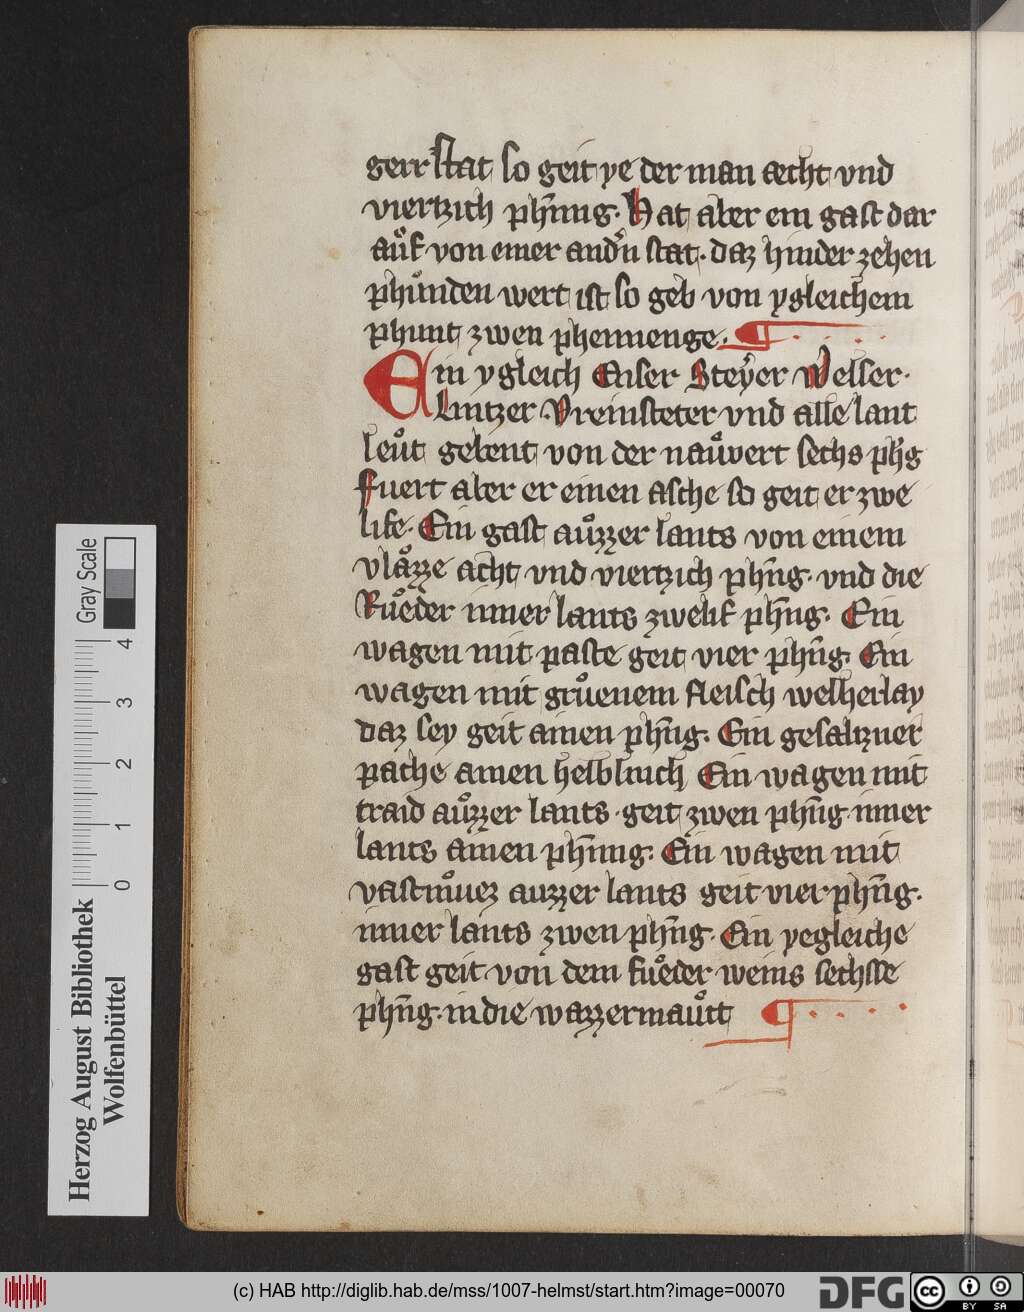 gerr stat so geit ye der man aecht vnd
viertzich phn̄nng. Hat aber ein gast dar
auͦf von einer andͤn stat. daz hinder zehen
phuͦnden wert ist so geb von ygleichem
phunt zwen phennenge.
Ein ygleich Enser Steÿer Welser.
Lintzer Vreinsteter vnd alle lant
leuͦt gebent von der nauͦvert sechs phn̄g
fuert aber er einen asche so geit er zwe
life. Ein gast auͦzzer lants von einem
vlaͦzze acht vnd viertzich phn̄g. vnd die
Ruͦeder inner lants zwelif phn̄g. Ein
wagen mit paste geit vier phn̄g. Ein
wagen mit gruͦenem fleisch welherlay
daz sey geit ainen phn̄g. Ein gesaltzner
pache ainen helblinch Ein wagen mit
traid auͦzzer lants. geit zwen phn̄g. inner
lants ainen phn̄nng. Ein wagen mit
vastmuͦez auzzer lants geit vier phn̄g.
inner lants zwen phn̄g. Ein yegleiche
gast geit von dem fuͦeder weins sechste
phn̄g. in die wazzermauͦtt
Gray Scale
0 1 2 3 4
Herzog August Bibliothek
Wolfenbüttel
(c) HAB http://diglib.hab.de/mss/1007-helmst/start.htm?image=00070
DFG
cc BY SA